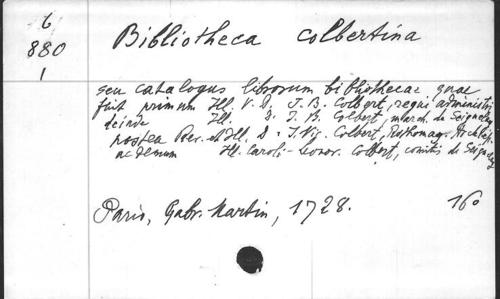 6
880
1
Bibliotheca colbertina
seu catalogus librorum bibliothecae quae
fuit primum Ill. V. D. J. B. Colbert, regni administri
deinde Ill. D. J. B. Colbert, march. de Seignelay
postea Rev. et Ill. D. J. Nic. Colbert, Rothomag. Archiep.
ac demum Ill. Caroli-Leonor. Colbert, comitis de Seignelay
Paris, Gabr. Martin, 1728. 16o